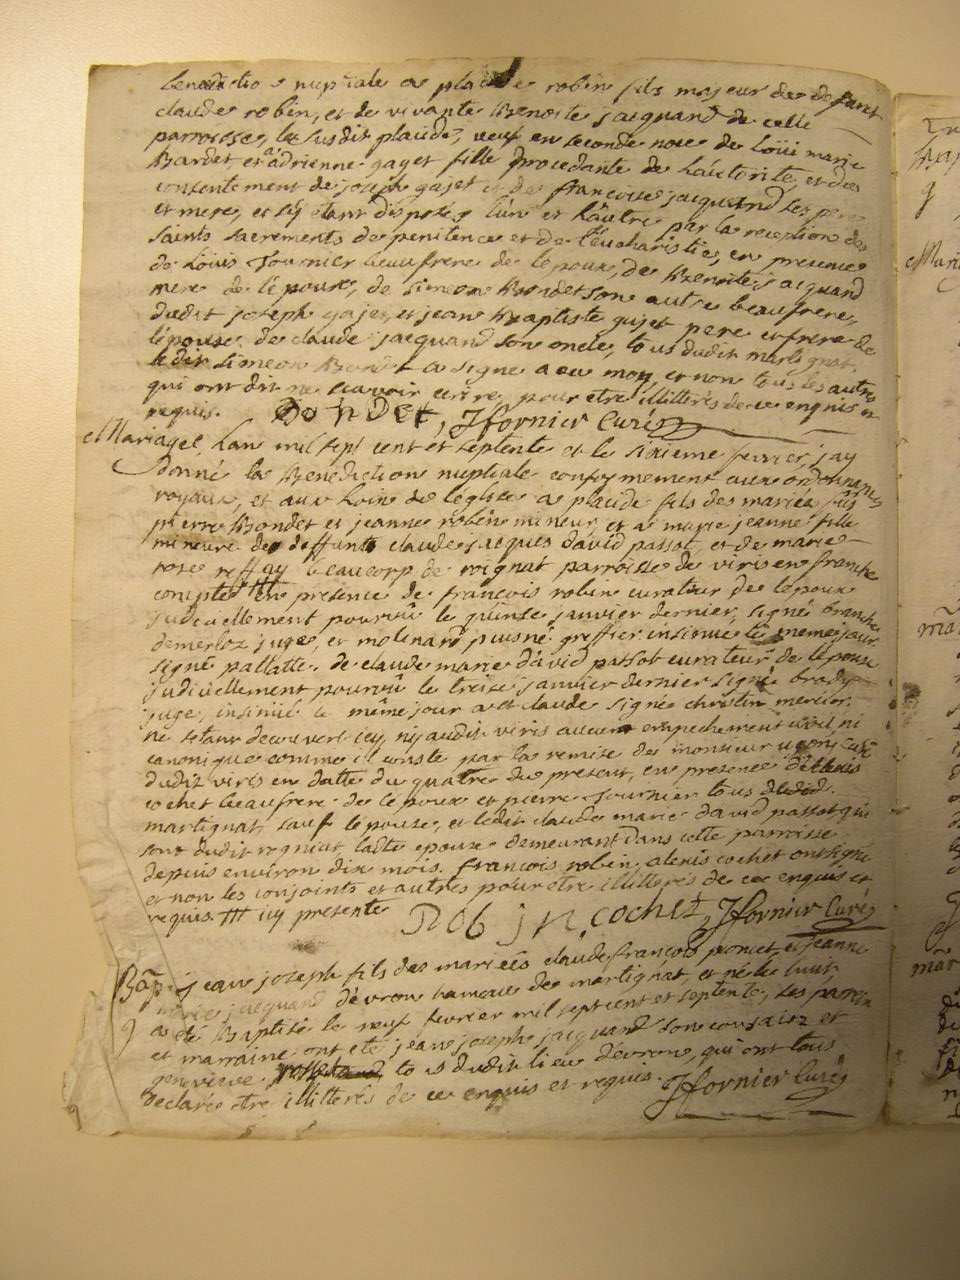 benedictio s nuptiale a plaide robin fils majeur de defunt
claude robin, et de vivante Benoite jacquand de cette
parroisse, le susdit plaude, veuf en seconde noce de loüi marie
Bardet et a adrienne gayet fille procedante de l'autorité, et des
consentement de joseph gajet et de francoise jacquand ses pere
et mere, et s'ÿ etant disposés l'un et l'autre par la reception des
saints sacrements de penitence et de l'eucharistie, en presence
de loüis fournier beaufrere de lepoux, de Benoite jacquand
mere de lepoux, de simeon Bondet son autre beaufrere,
dudit joseph gajet, et jean Baptiste gajet pere et frere de
lépouse, de claude jacquand son oncle, tous dudit martignat,
ledit simeon Bondet a signe avec moy, et non tous les autres
qui ont dit ne scavoir ecrire pour etre illitterés de ce enquis et
requis. BonDet, Jfornier Curé
Mariage l'an mil sept cent et septente et le sixieme fevrier, j'ay
donné la Benediction nuptiale conformement aux ordonnances
royaux, et aux loix de leglise a plaude fils des mariés
pierre Bondet et jeanne robin mineur, et a marie jeanne fille
mineure de deffunt claude jacques david passot, et de marie
rose reffay beaucorp de roignat parroisse de viris en franche
compte /// en presence de francois robin curateur de lepoux
judicuellement pourvû le quinse janvier dernier, signé
demerloz juge, et molinard puisné greffier, insinue le meme jour
signé pallatte, de claude marie david passot curateur de lepouse
judicuellement pourvû le treise janvier dernier signé brady
juge, insinüé le même jour a st claude signé christin mercier,
ne setant decouvert icy, ny audit viris aucun empechement civil, ni
canonique comme il conste par la remise de monsieur curé
dudit viris en datte du quatre du present, en presence
cochet beaufrere de lepoux et pierre fournier tous dudit
martignat, sauf lépouse, et ledit claude marie david passot qui
sont dudit rogniat ladte epouse demeurant dans cette parroisse
depuis environ dix mois. francois robin, alexis cochet ont signé
et non les conjoints et autres pour etre illitterés de ce enquis et
requis. /// icy presente RobjN, cochet, Jfornier Curé
Bap jean joseph fils des mariés claude francois poncet et jeanne
marie jacquand d'évron hameau de martignat, et né le huit,
a eté Baptisé le neuf fevrier mil sept cent et septente, ses parrein
et marraine ont eté jean joseph jacquand son cousain et
genevieve tous dudit lieu d'evron, qui ont tous
declarés etre illitterés de ce enquis et requis. Jfornier Curé